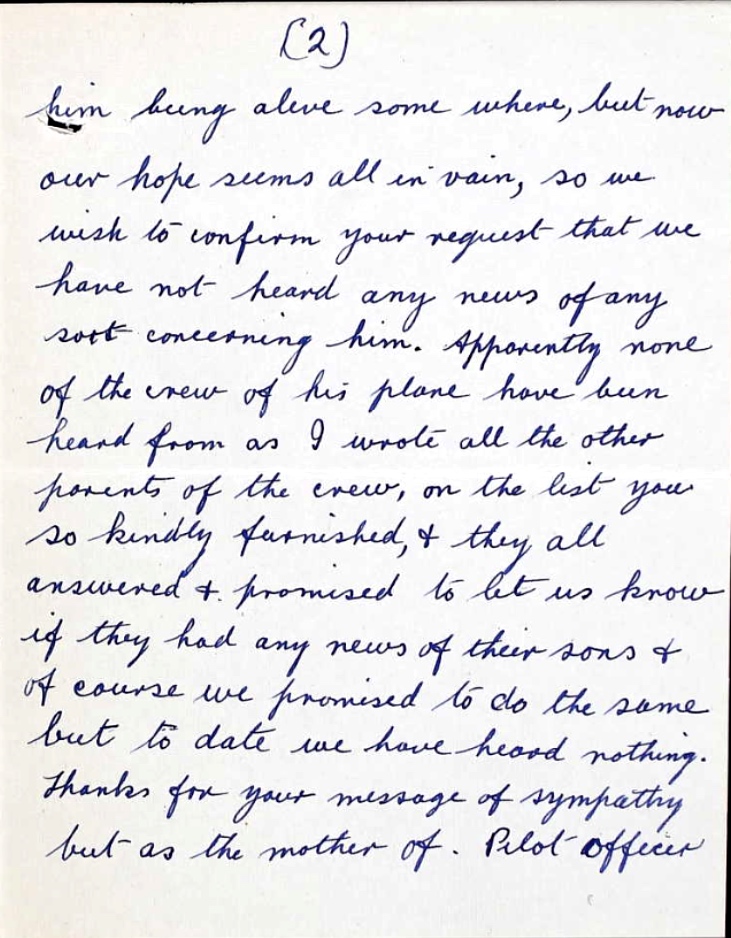 (2)
him being alive some where, but now
our hope seems all in vain, so we
wish to confirm your request that we
have not heard any news of any
sort concerning him. Apparently none
of the crew of his plane have been
heard from as I wrote all the other
parents of the crew, on the list you
so kindly furnished, & they all
answered & promised to let us know
if they had any news of their sons &
of course we promised to do the same
but to date we have heard nothing.
Thanks for your message of sympathy
but as the mother of. Pilot Officer